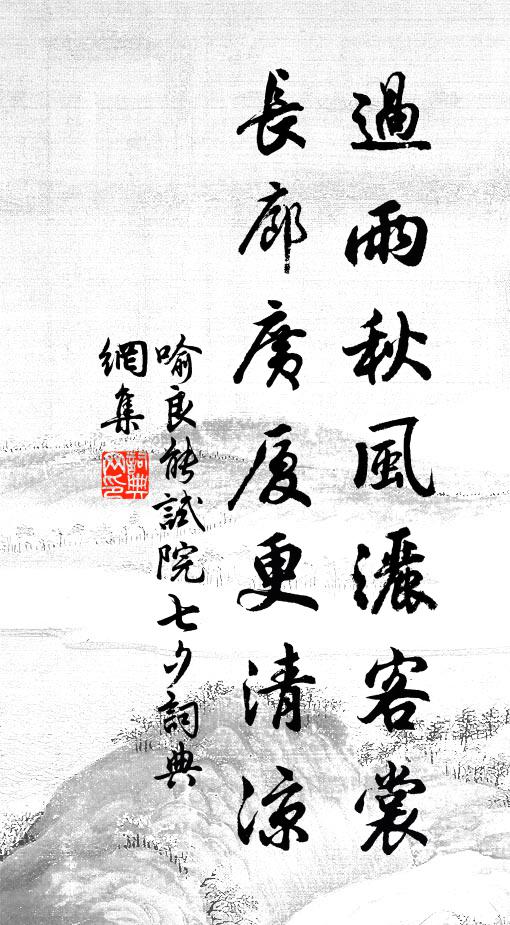 過雨秋風灑客裳
長廊廣厦更清涼
喻良能試院七夕詞典
網集
詞典
网印